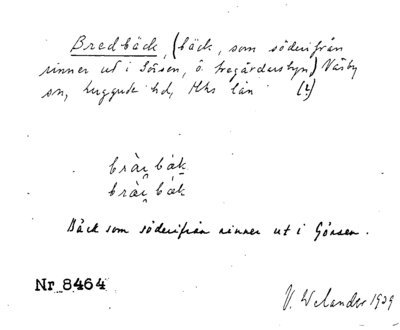 Bredbäck, (bäck, som söderifrån
rinner ut i Görsen, ö. Vregårdens byn) Väsby
sn, Luggude hd, Mhs län (?)
bràr bák
bràr bák
Bäck som söderifrån rinner ut i Görsen.
Nr 8464
V. Welander 1929